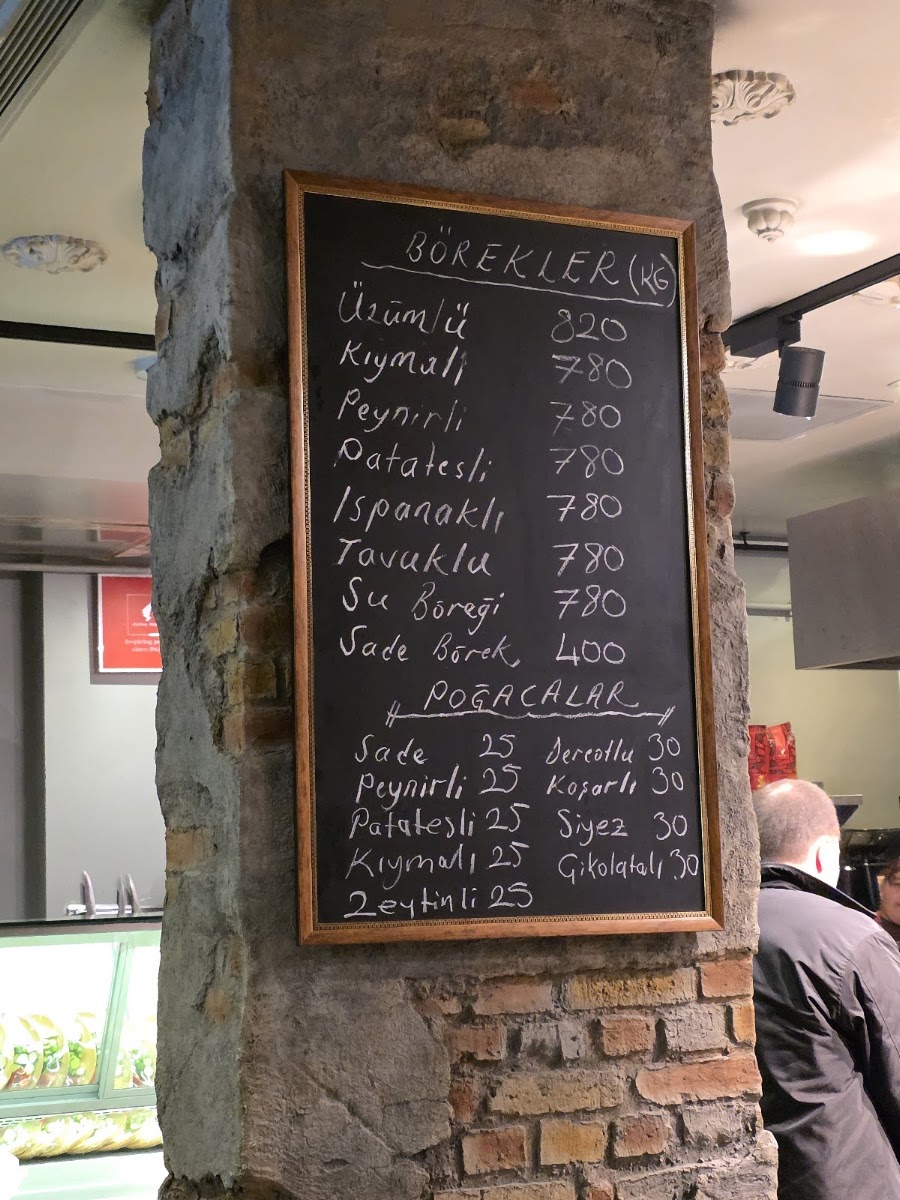 BÖREKLER (KG)
Üzümlü 820
Kıymalı 780
Peynirli 780
Patatesli 780
Ispanaklı 780
Tavuklu 780
Su Böreği 780
Sade Börek 400
POĞACALAR
Sade 25 Dereotlu 30
Peynirli 25 Koşarlı 30
Patatesli 25 Siyez 30
Kıymalı 25 Çikolatalı 30
Zeytinli 25